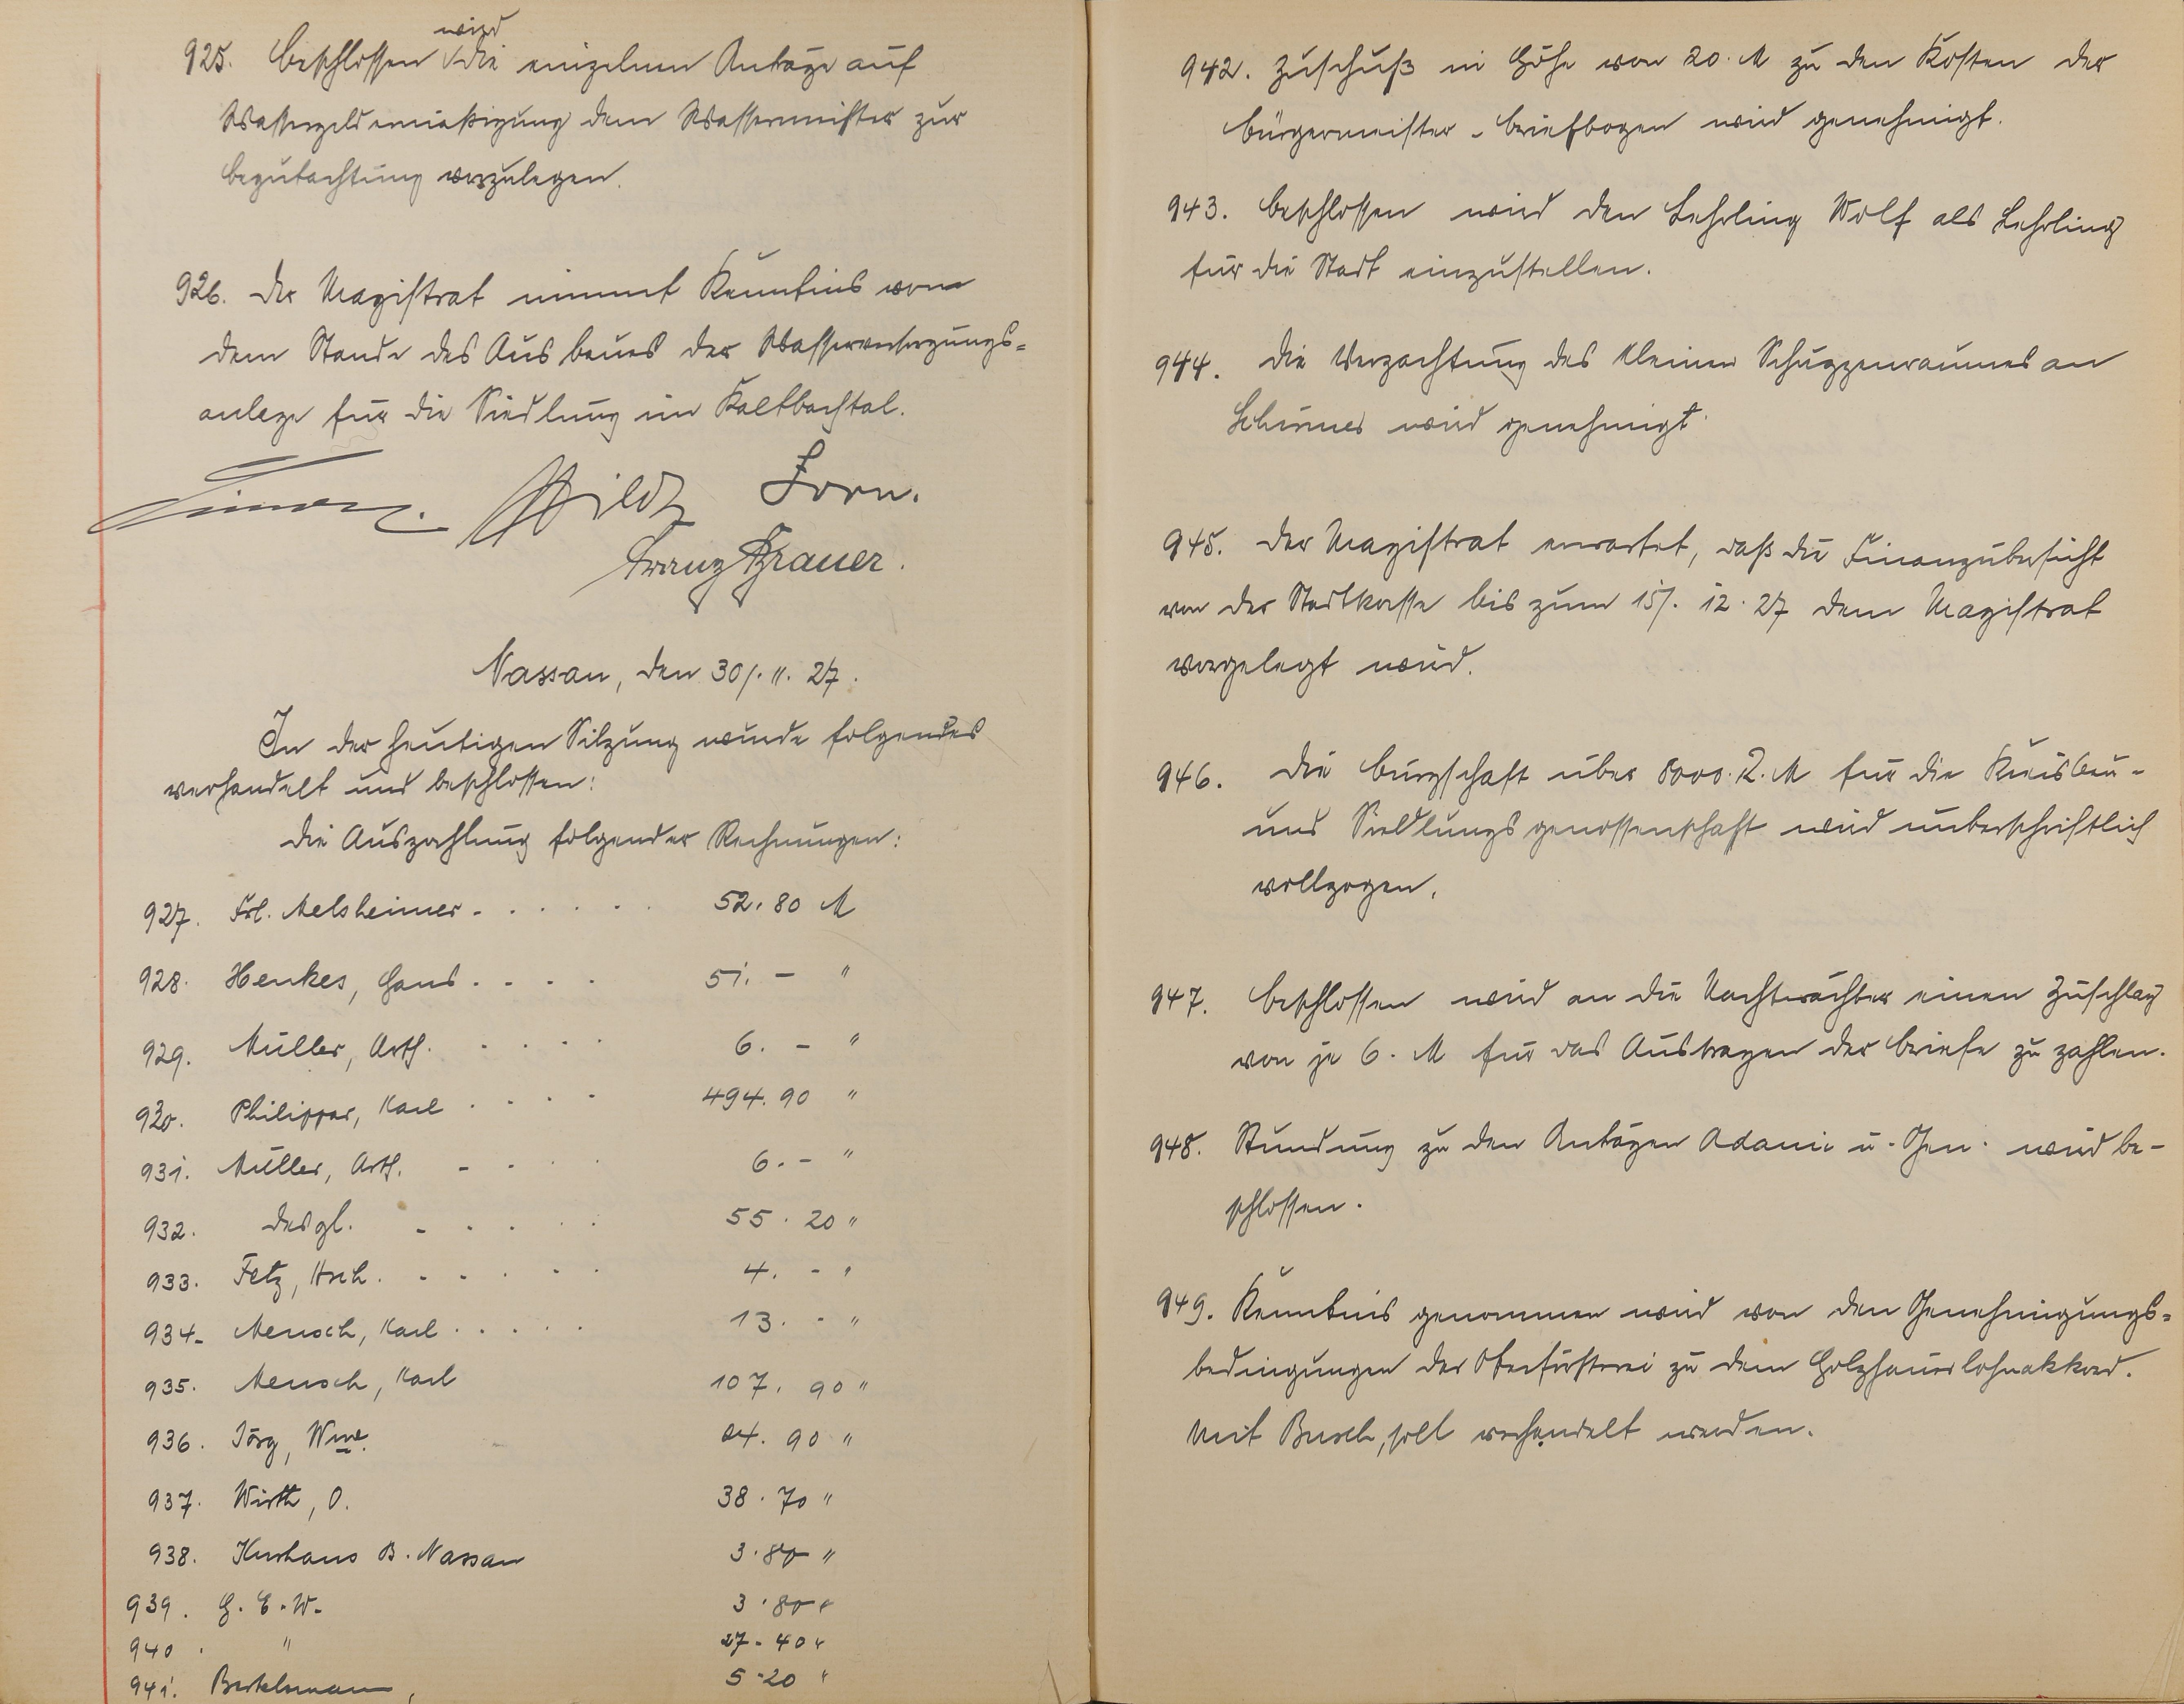 wird
925. Beschlossen √ die einzelnen Anträge auf
Wassergeldermäßigung dem Wassermeister zur
Begutachtung vorzulegen.
926. Der Magistrat nimmt Kenntnis von
dem Stande des Ausbaues der Wasserversorgungs-
anlage für die Siedlung im Kaltbachtal.
Hild Forn.
Franz Brauer.
Nassau, den 30/. 11. 27.
In der heutigen Sitzung wurde folgendes
verhandelt und beschlossen:
Die Auszahlung folgender Rechnungen:
927. Frl. Melsheimer . . . . . 52.80 M
928. Henkes, Hans . . . . 51. - "
929. Müller, Arth. . . . . 6. - "
930. Philippar, Karl . . . . 494.90 "
931. Müller, Arth. - . . . 6. - "
932. desgl. - . . . . 55.20 "
933. Fetz, Hrch. . . . . . 4. - "
934. Mensch, Karl . . . . . 13. - "
935. Mensch, Karl 107.90 "
936. Jörg, Wwe. 90 "
937. Wirth, O. 38.70 "
938. Kurhaus B. Nassau 3.80 "
939. G. E. W. 3.80 "
940. " 27.40 "
941. Bertelsmann, 5.20 "
942. Zuschuß in Höhe von 20. M zu den Kosten der
Bürgermeister-Briefbogen wird genehmigt.
943. Beschlossen wird den Lehrling Wolf als Lehrling
für die Stadt einzustellen.
944. Die Verpachtung des kleinen Schuppenraumes an
wird genehmigt.
945. Der Magistrat erwartet, daß die Finanzübersicht
von der Stadtkasse bis zum 15/. 12. 27 dem Magistrat
vorgelegt wird.
946. Die Bürgschaft über 8000. R. M für die Kreisbau-
und Siedlungsgenossenschaft wird unterschriftlich
vollzogen.
947. Beschlossen wird an die Nachtwächter einen Zuschlag
von je 6. M für das Austragen der Briefe zu zahlen.
948. Stundung zu den Anträgen Adami u. Gen. wird be-
schlossen.
949. Kenntnis genommen wird von den Genehmigungs-
bedingungen der Oberförsterei zu dem Holzhauerlohnakkord.
Mit Busch, soll verhandelt werden.